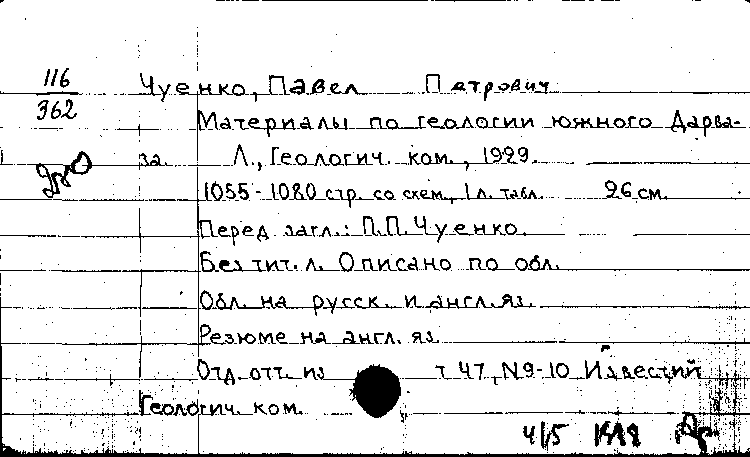 116
362
Чуенко, Павел Петрович
Материалы по геологии южного Дарва-
за. Л., Геологич. ком., 1929.
1055-1080 стр. со схем., 1 л. табл. 26 см.
Перед загл.: П.П. Чуенко.
Без тит. л. Описано по обл.
Обл. на русск. и англ. яз.
Резюме на англ. яз.
Отд. отт. из т 47, N9-10 Известий
Геологич. ком.
4/5